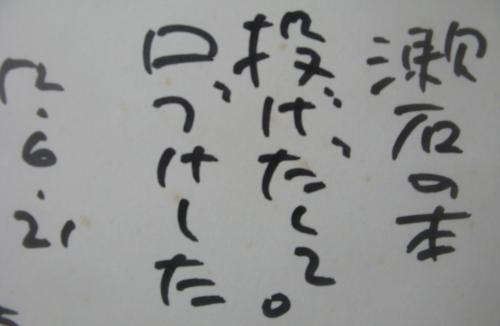 漱石の本
投げだして
口づけした。
12.6.21